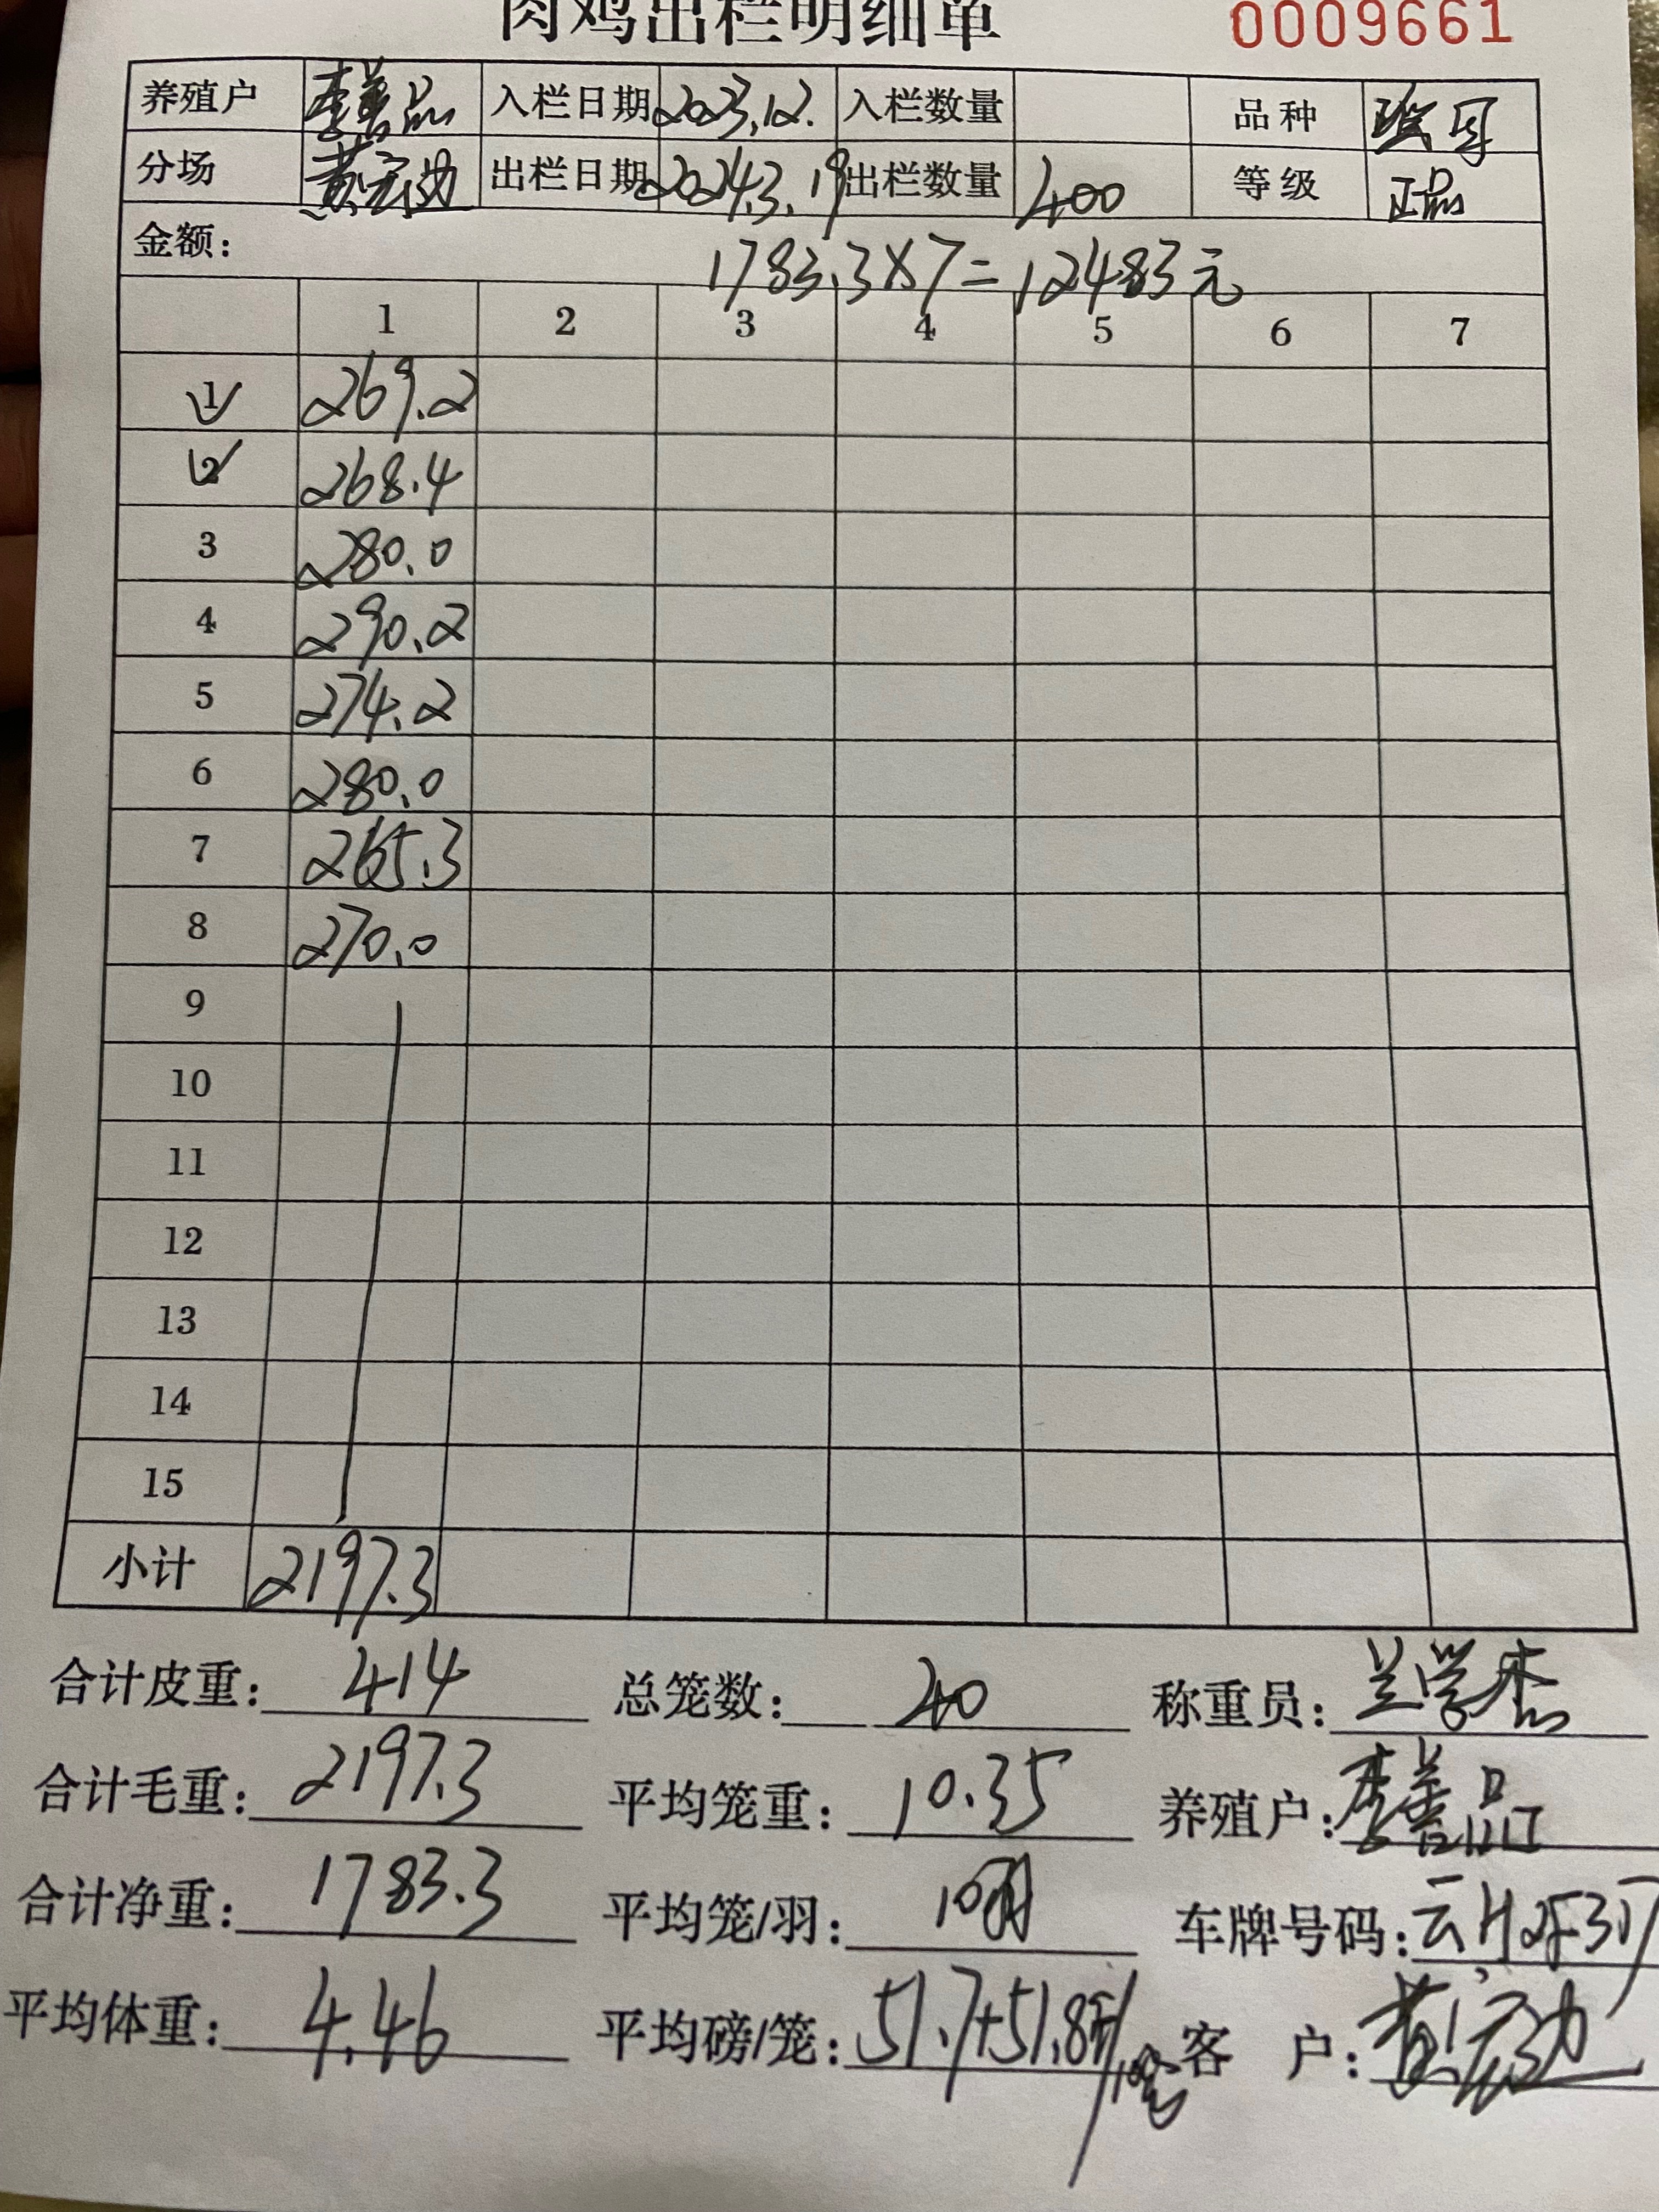 肉鸡出栏明细单 0009661
养殖户 李善品 入栏日期 2023.12. 入栏数量 品种
分场 黄宏边 出栏日期 2024.3.19 出栏数量 400 等级 正品
金额: 1783.3X7=12483元
1 2 3 4 5 6 7
1 269.2
2 268.4
3 280.0
4 290.2
5 274.2
6 280.0
7 265.3
8 270.0
9
10
11
12
13
14
15
小计 2197.3
合计皮重: 414 总笼数: 40 称重员: 兰学杰
合计毛重: 2197.3 平均笼重: 10.35 养殖户: 李善品
合计净重: 1783.3 平均笼/羽: 10羽 车牌号码:
平均体重: 4.46 平均磅/笼: 51.7+51.8 客 户: